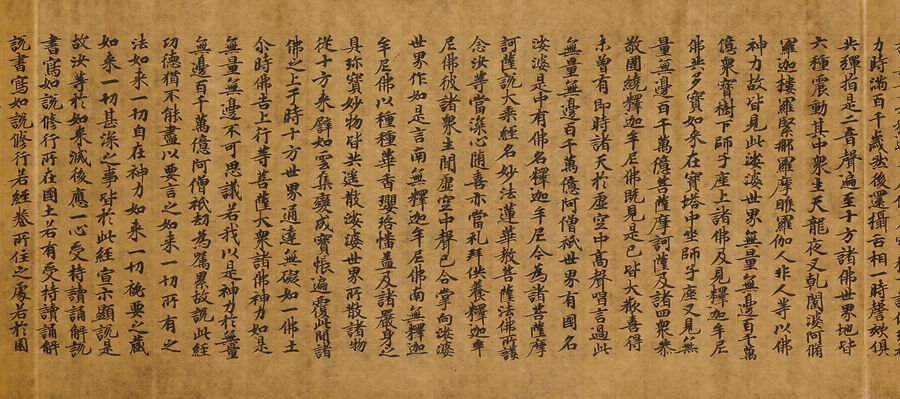 力時滿百千歲然後還攝舌相一時謦欬俱
共彈指是二音聲遍至十方諸佛世界地皆
六種震動其中衆生天龍夜叉乹闥婆阿脩
羅迦樓羅緊那羅摩睺羅伽人非人等以佛
神力故皆見此娑婆世界無量無邊百千萬
億衆寶樹下師子座上諸佛及見釋迦牟尼
佛共多寶如来在寶塔中坐師子座又見無
量無邊百千萬億菩薩摩訶薩及諸四衆恭
敬圍繞釋迦牟尼佛既見是已皆大歡喜得
未曾有即時諸天於虛空中高聲唱言過此
無量無邊百千萬億阿僧祇世界有國名
娑婆是中有佛名釋迦牟尼今為諸菩薩摩
訶薩說大乘經名妙法蓮華教菩薩法佛所護
念汝等當深心随喜亦當礼拜供養釋迦牟
尼佛彼諸衆生聞虛空中聲已合掌向娑婆
世界作如是言南無釋迦牟尼佛南無釋迦
牟尼佛以種種華香瓔珞幡蓋及諸嚴身之
具珎寶妙物皆共遥散娑婆世界所散諸物
從十方来譬如雲集變成寶帳遍覆此間諸
佛之上于時十方世界通達無礙如一佛土
尒時佛告上行等菩薩大衆諸佛神力如是
無量無邊不可思議若我以是神力於無量
無邊百千萬億阿僧祇劫為囑累故說此經
功德猶不能盡以要言之如来一切所有之
法如来一切自在神力如来一切秘要之藏
如来一切甚深之事皆於此經宣示顯說是
故汝等於如来滅後應一心受持讀誦解說
書寫如說修行所在國土若有受持讀誦解
說書寫如說修行若經卷所住之處若於園